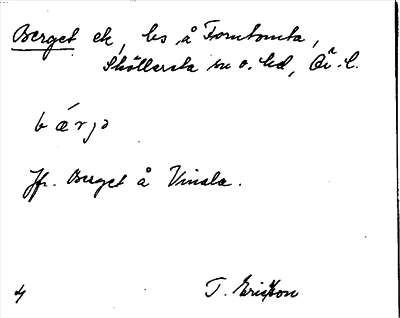 Berget ek, bs å Torntomta,
Sköllersta sn o. hd, Ör. l.
b æ r j ə
Jfr. Berget å Vinala.
T. Ericsson